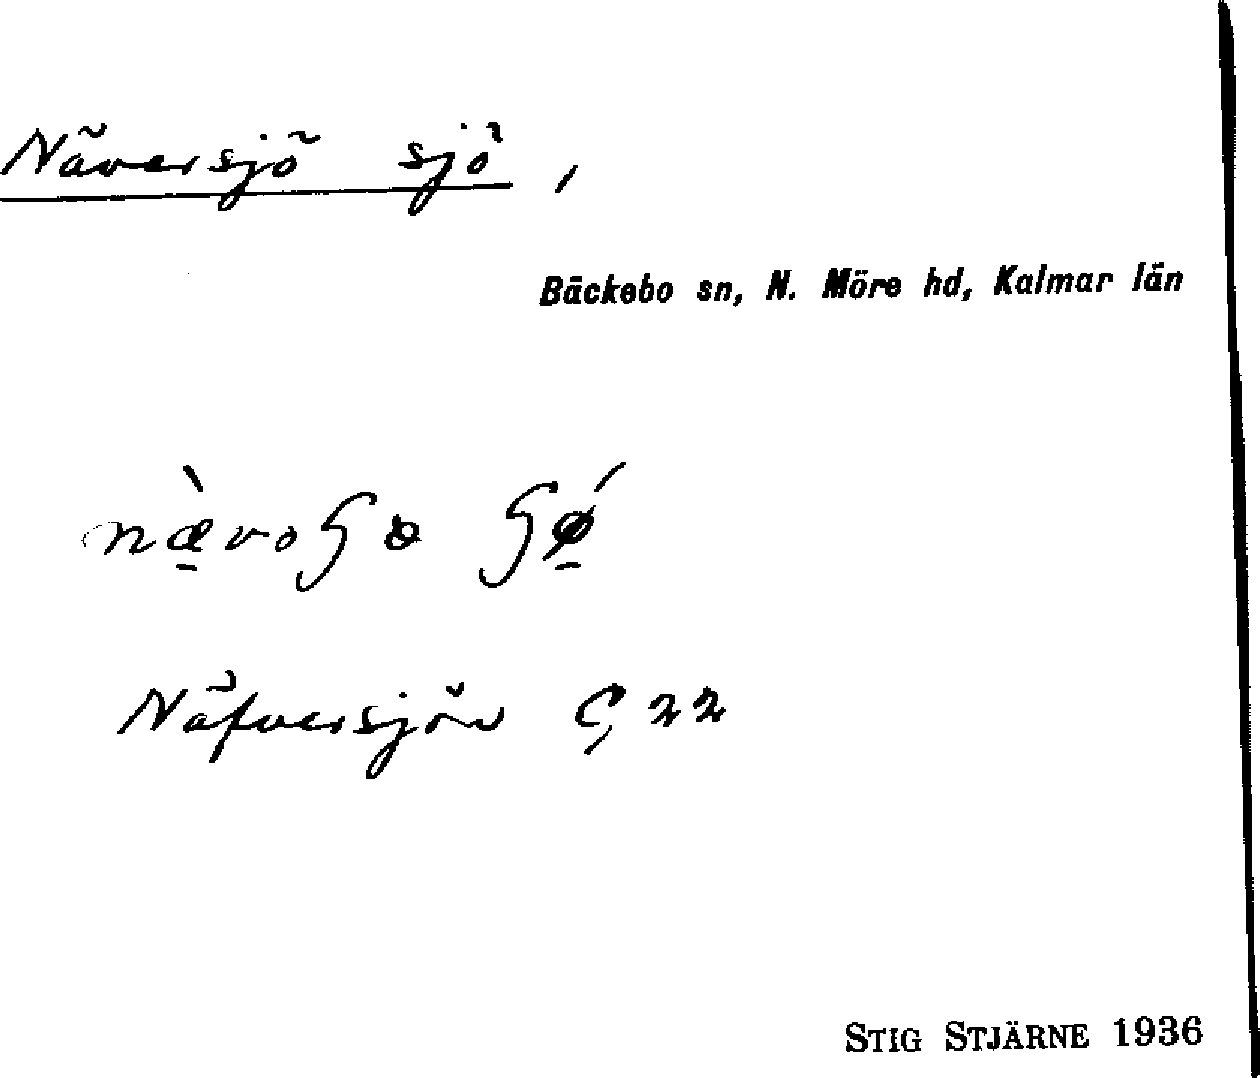 Näversjö sjö,
Bäckebo sn, N. Möre hd, Kalmar län
Näfversjön G 22
STIG STJÄRNE 1936